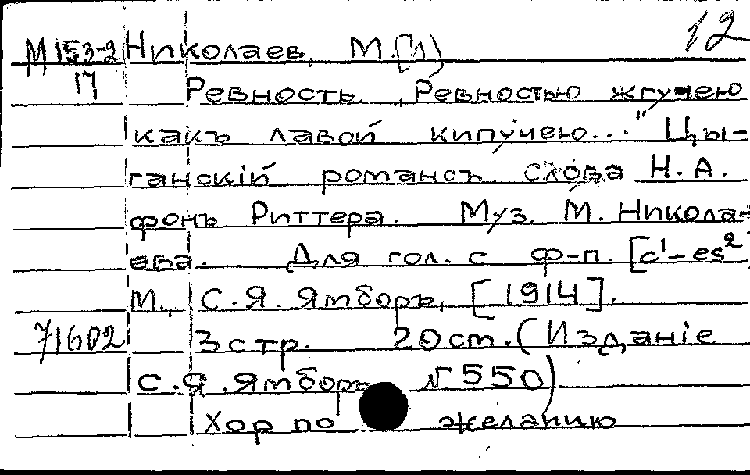 12
М 153-2 Николаев, М. (1)
17 Ревность. „Ревностью жгучею
какъ лавой кипучею..." Цы-
ганскій романсъ слова Н. А.
фонъ Риттера. Муз. М. Никола-
ева. Для гол. с ф-п. [c¹-es²
М., С. Я. Ямборъ, [1914].
71602 3 стр. 20 ст. (Изданіе
С. Я. Ямборъ № 550)
Хор по желанию